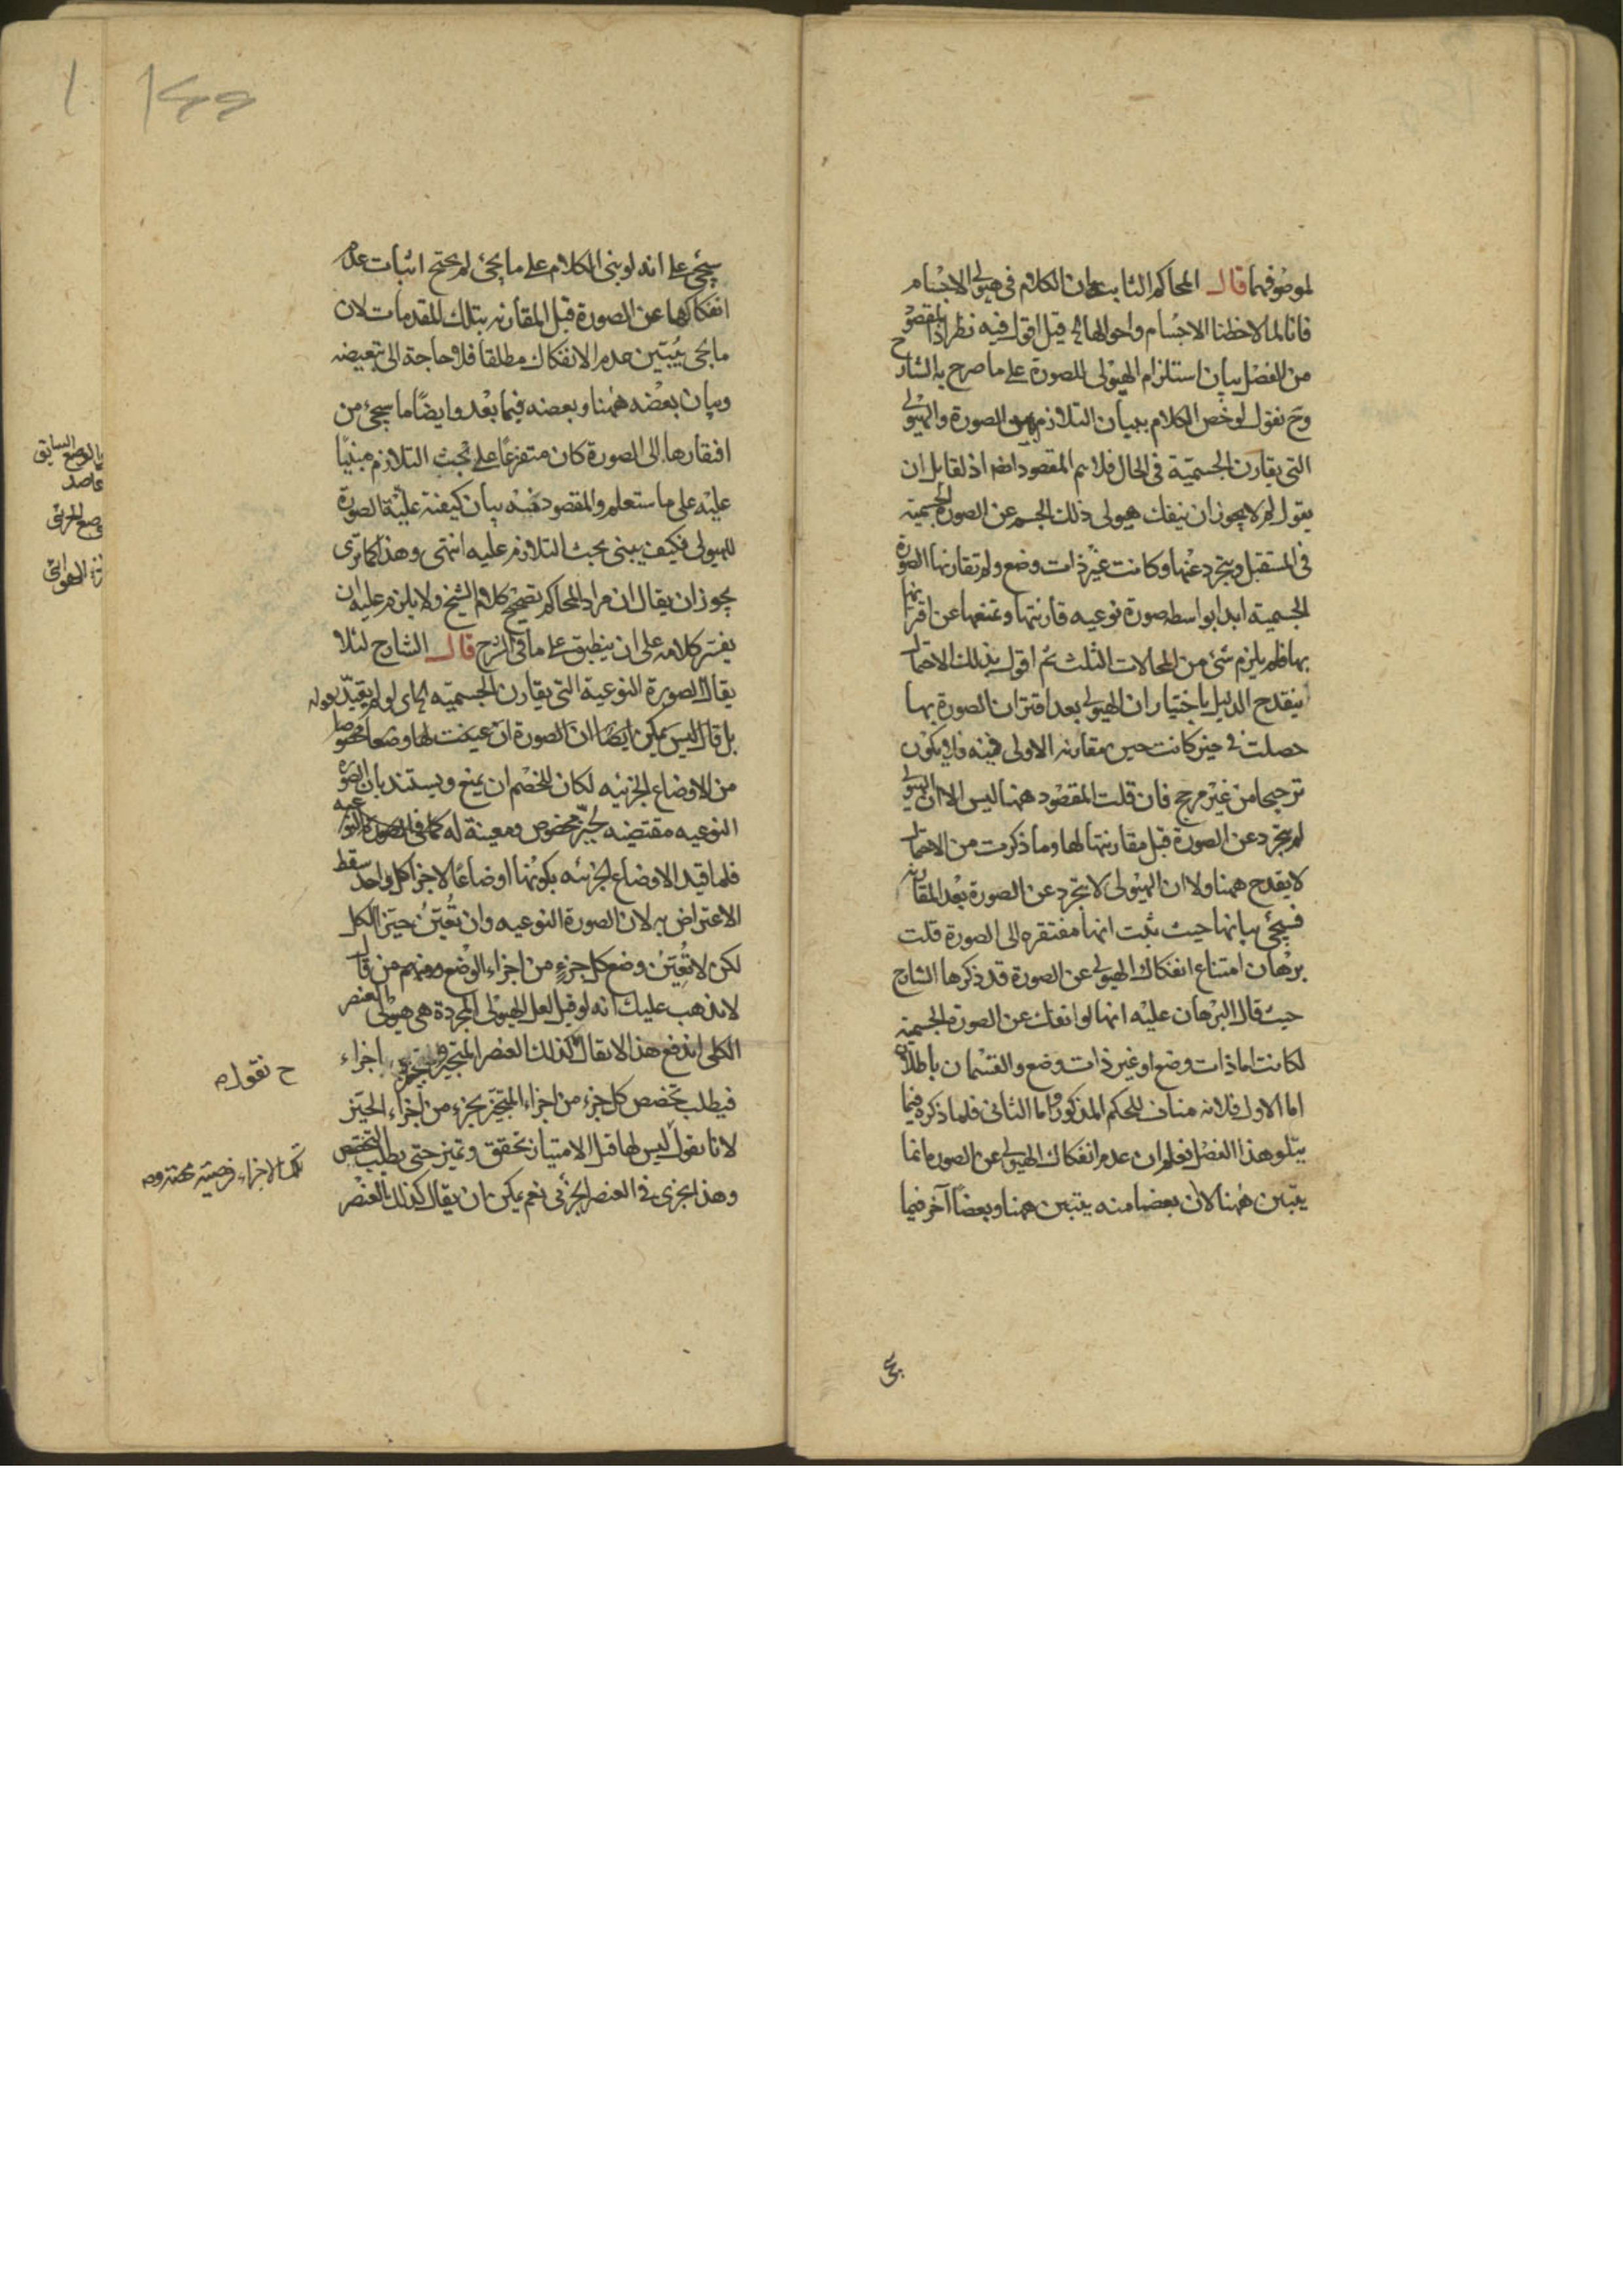 لموضوفيها قال المحاكم الثابت ان الكلام فى هيولى الاجسام
فانا لما لاحظنا الاجسام واحوالها الخ قيل اقول فيه نظر اذ المقصود
من الفصل بيان استلزام الهيولى للصورة على ما صرح به الشارح
وح نقول لو خص الكلام ببيان التلازم بين الصورة والهيولى
التى يقارن الجسمية فى الحال فلا يتم المقصود ايضا اذ لقايل ان
يقول لم لا يجوز ان ينفك هيولى ذلك الجسم عن الصورة الجسمية
فى المستقبل ويتجرد عنها وكانت غير ذات وضع ولم تقارنها الصورة
الجسمية ابدا بواسطه صورة نوعيه قارنتها وتمنعها عن اقترانها
بها فلم يلزم شئ من المحالات الثلث ثم اقول بذلك الاحتمال
ينقدح الدليل باختيار ان الهيولى بعد اقتران الصورة بها
حصلت فى حيز كانت حين مقارنه الاولى فيه فلا يكون
ترجيحا من غير مرجح فان قلت المقصود ههنا ليس الا ان الهيولى
لم يتجرد عن الصورة قبل مقارنتها لها وما ذكرت من الاحتمال
لا يقدح ههنا ولا ان الهيولى لا يتجرد عن الصورة بعد المقارنه
فسيجئ بيانها حيث ثبت انها مفتقره الى الصورة قلت
برهان امتناع انفكاك الهيولى عن الصورة قد ذكرها الشارح
حيث قال البرهان عليه انها لو انفك عن الصورة الجسمية
لكانت اما ذات وضع او غير ذات وضع والقسمان باطلان
اما الاول فلانه مناف للحكم المذكور واما الثانى فلما ذكره فيما
يتلو هذا الفصل فعلم ان عدم انفكاك الهيولى عن الصورة انما
يتبين ههنا لان بعضا منه يتبين ههنا وبعضا آخر فيما
سيجئ على انه لو بنى الكلام على ما يجئ لم يحتج اثبات عدم
انفكاكها عن الصورة قبل المقارنه بتلك المقدمات لان
ما يجئ يبين عدم الانفكاك مطلقا فلا حاجة الى تبعيضه
وبيان بعضه ههنا وبعضه فيما بعد وايضا ما سيجئ من
افتقارها الى الصورة كان متفرعا على بحث التلازم مبنيا
عليه على ما ستعلم والمقصود فيه بيان كيفية علية الصورة
للهيولى فكيف يبنى بحث التلازم عليه انتهى وهذا كما ترى
يجوز ان يقال ان مراد المحاكم تصحيح كلام الشيخ ولا يلزم عليه ان
يفسر كلامه على ان ينطبق على ما فى الشرح قال الشارح لئلا
يقال الصورة النوعية التى يقارن الجسميه الخ اى لو لم يقيد بقوله
بل قال ليس يمكن ايضا ان الصورة ان عينت لها وضعا مخصوصا
من الاوضاع الجزئيه لكان للخصم ان يمنع ويستند بان الصورة
النوعيه مقتضيه لحيز مخصوص ومعينة له كما فى الصورة النوعيه
فلما قيد الاوضاع الجزئيه بكونها اوضاعا لاجزا كل واحد سقط
الاعتراض به لان الصورة النوعيه وان تعين حيز الكل
لكن لا تعين وضع كل جزء من اجزاء الوضع ومنهم من قال
لا يذهب عليك انه لو قيل لعل الهيولى المجردة هى هيولى العنصر
الكلى اندفع هذا لا يقال كذلك العنصر المتحيز اجزاء
فيطلب تخصص كل جزء من اجزاء المتحيز بجزء من اجزاء الحيز
لانا نقول ليس لها قبل الامتياز تحقق وتميز حتى يطلب التخصص
وهذا يجرى فى العنصر الجزئى نعم يمكن ان يقال كذلك بالعنصر
ح نقول
تلك الاجزاء فرضية
الوضع السابق